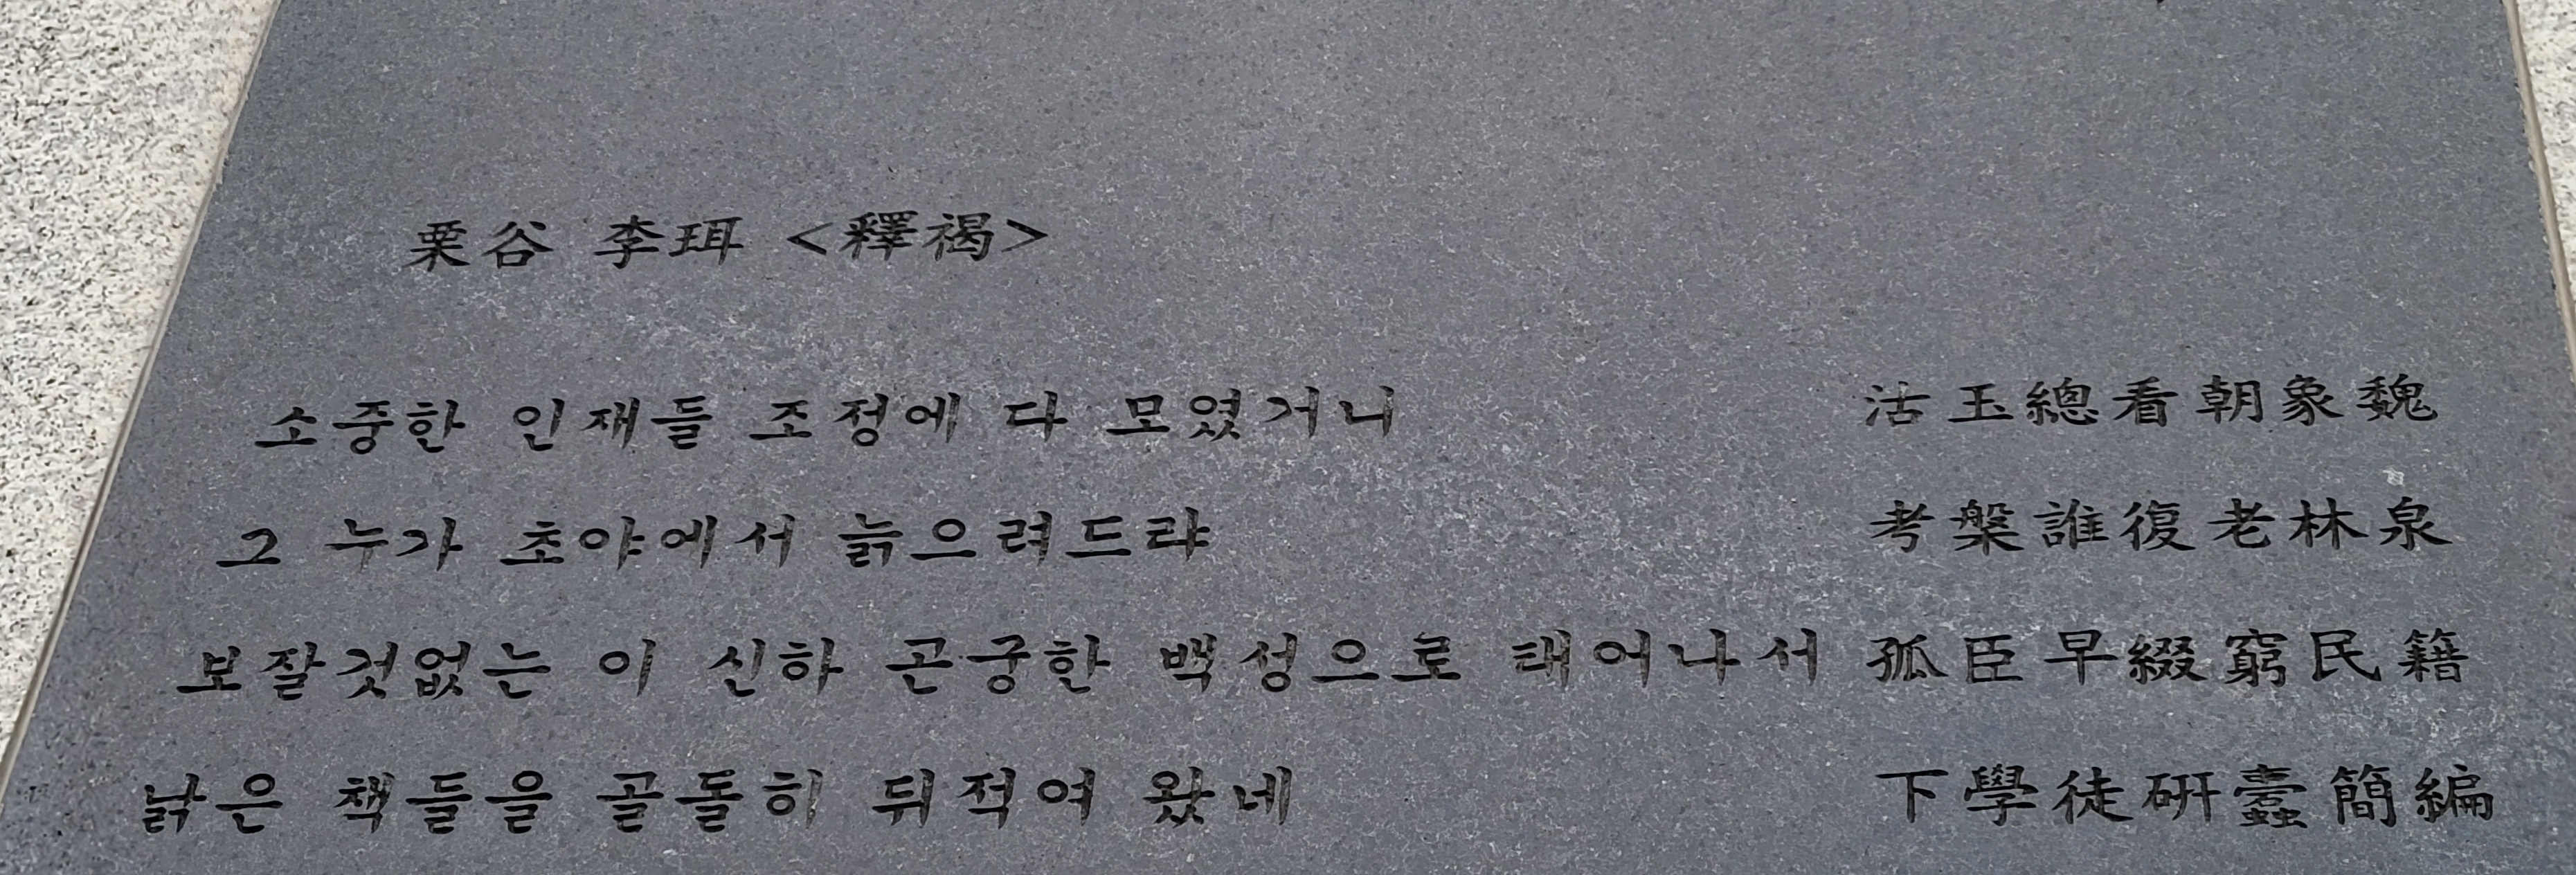 栗谷 李珥 <釋褐>
소중한 인재들 조정에 다 모였거니 沽玉總看朝象魏
그 누가 초야에서 늙으려드랴 考槃誰復老林泉
보잘것없는 이 신하 곤궁한 백성으로 태어나서 孤臣早綴窮民籍
낡은 책들을 골돌히 뒤적여 왔네 下學徒硏蠹簡編